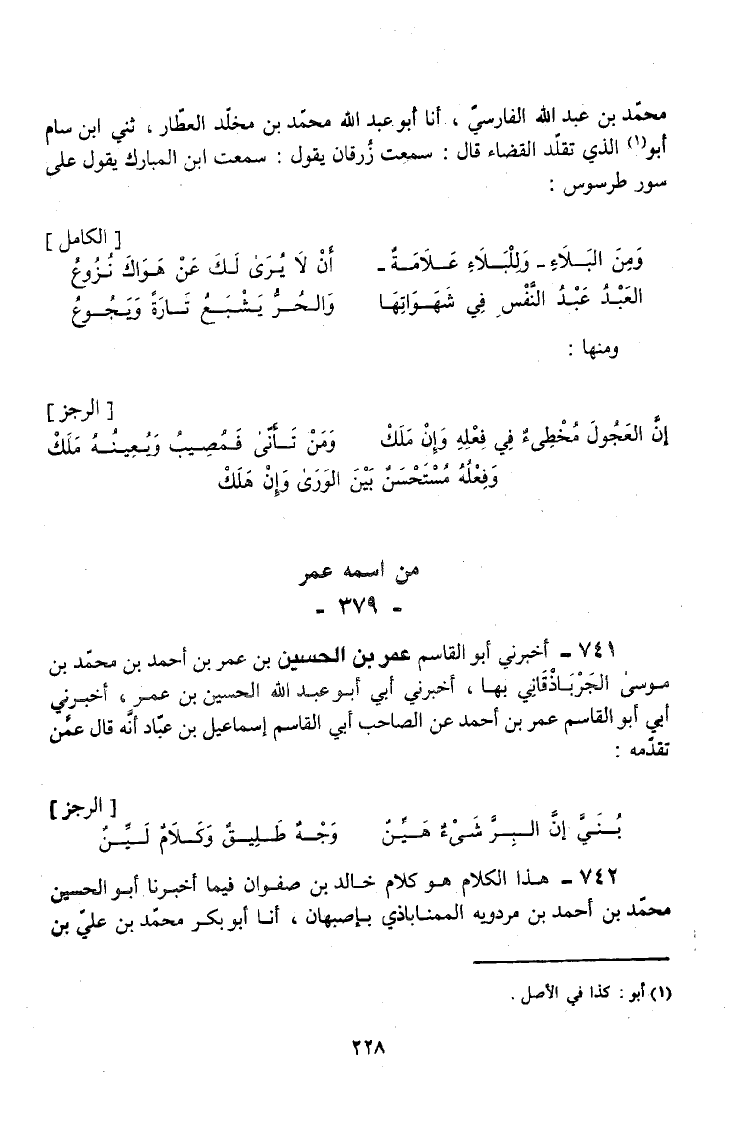 محمّد بن عبد الله الفارسيّ ، أنا أبو عبد الله محمّد بن مخلّد العطّار ، ثني ابن سام
أبو(١) الذي تقلّد القضاء قال : سمعت زُرقان يقول : سمعت ابن المبارك يقول على
سور طرسوس :
[ الكامل ]
وَمِنَ البَلَاءِ - وَلِلْبَلَاءِ عَلَامَةٌ - أَنْ لَا يُرَىٰ لَكَ عَنْ هَوَاكَ نُزُوعُ
العَبْدُ عَبْدُ النَّفْسِ فِي شَهَوَاتِهَا وَالحُرُّ يَشْبَعُ تَارَةً وَيَجُوعُ
ومنها :
[ الرجز ]
إنَّ العَجُولَ مُخْطِيءٌ فِي فِعْلِهِ وَإِنْ مَلَكْ وَمَنْ تَأَنَّىٰ فَمُصِيبُ وَيُعِينُهُ مَلَكْ
وَفِعْلُهُ مُسْتَحْسَنٌ بَيْنَ الوَرَىٰ وَإِنْ هَلَكْ
من اسمه عمر
- ٣٧٩ -
٧٤١ - أخبرني أبو القاسم عمر بن الحسين بن عمر بن أحمد بن محمّد بن
موسىٰ الجَرْبَاذْقَاني بها ، أخبرني أبي أبو عبد الله الحسين بن عمر ، أخبرني
أبي أبو القاسم عمر بن أحمد عن الصاحب أبي القاسم إسماعيل بن عبّاد أنّه قال عمَّن
تقدّمه :
[ الرجز ]
بُنَيَّ إنَّ البِرَّ شَيْءٌ هَيِّنٌ وَجْهٌ طَلِيقٌ وَكَلَامٌ لَيِّنٌ
٧٤٢ - هذا الكلام هو كلام خالد بن صفوان فيما أخبرنا أبو الحسين
محمّد بن أحمد بن مردويه الممناباذي بإصبهان ، أنا أبو بكر محمّد بن عليّ بن
(١) أبو : كذا في الأصل .
٢٢٨